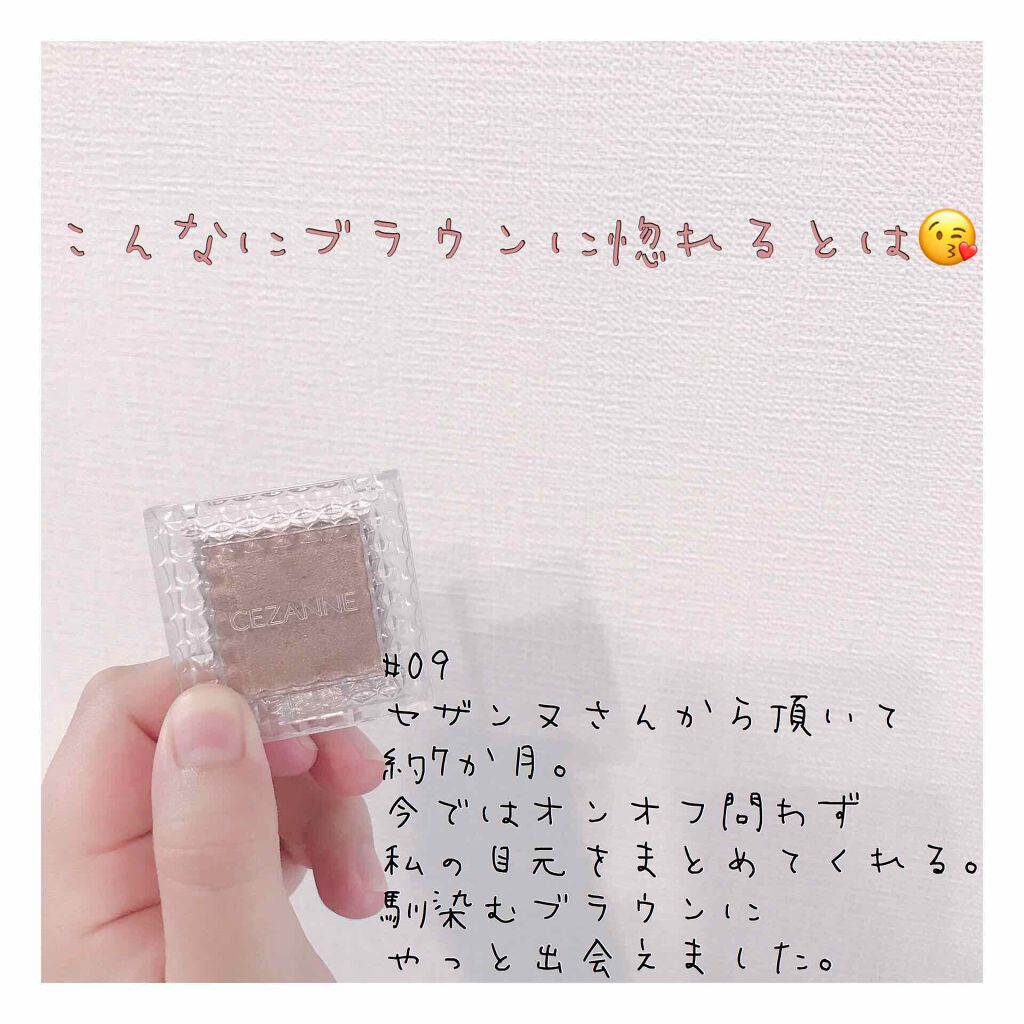 こんなにブラウンに惚れるとは😘
CEZANNE
#09
セザンヌさんから頂いて
約7か月。
今ではオンオフ問わず
私の目元をまとめてくれる。
馴染むブラウンに
やっと出会えました。